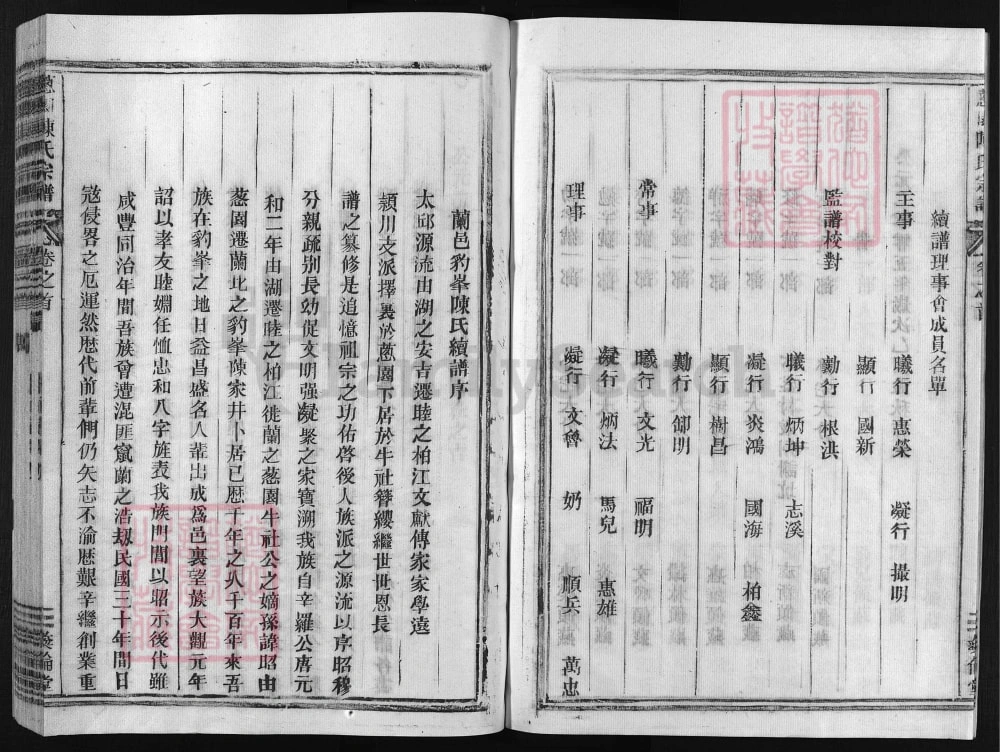 續譜理事會成員名單
主事 曦行 惠榮 凝行 撮明
顯行 國新
監譜校對 勤行 根洪
曦行 炳坤 志溪
凝行 炎鴻 國海 柏鑫
顯行 樹昌
勤行 御明
常事 曦行 文光 福明
凝行 炳法 馬兒 惠雄
理事 凝行 文魯 奶 順兵 萬忠
蘭邑豹峯陳氏續譜序
太邱源流由湖之安吉遷睦之柏江文獻傳家家學遠
潁川支派擇裏於蒽園下居於牛社簪纓繼世世恩長
譜之纂修是追憶祖宗之功佑啓後人族派之源流以序昭穆
分親疏別長幼促文明强凝聚之家寶溯我族自辛羅公唐元
和二年由湖遷睦之柏江徙蘭之葱園牛社公之嫡孫諱昭由
葱園遷蘭北之豹峯陳家井卜居已歷千年之久千百年來吾
族在豹峯之地日益昌盛名人輩出成爲邑裏望族大觀元年
詔以孝友睦婣任恤忠和八字旌表我族門閭以昭示後代雖
咸豐同治年間吾族會遭混匪竄蘭之浩刼民國三十年間日
寇侵畧之厄運然歷代前輩們仍矢志不渝歷艱辛繼創業重
陳氏宗譜 卷之首
FamilySearch